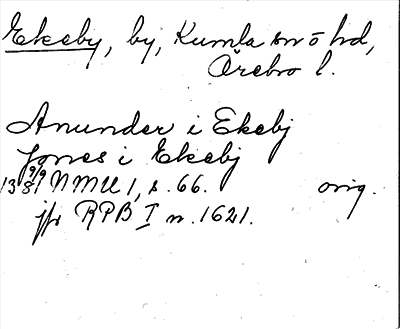 Ekeby, by, Kumla sn o hd,
Örebro l.
Anunder i Ekebj
Jones i Ekebj
13 9/9 81 NMU 1, s. 66. orig.
jfr RPB I n. 1621.